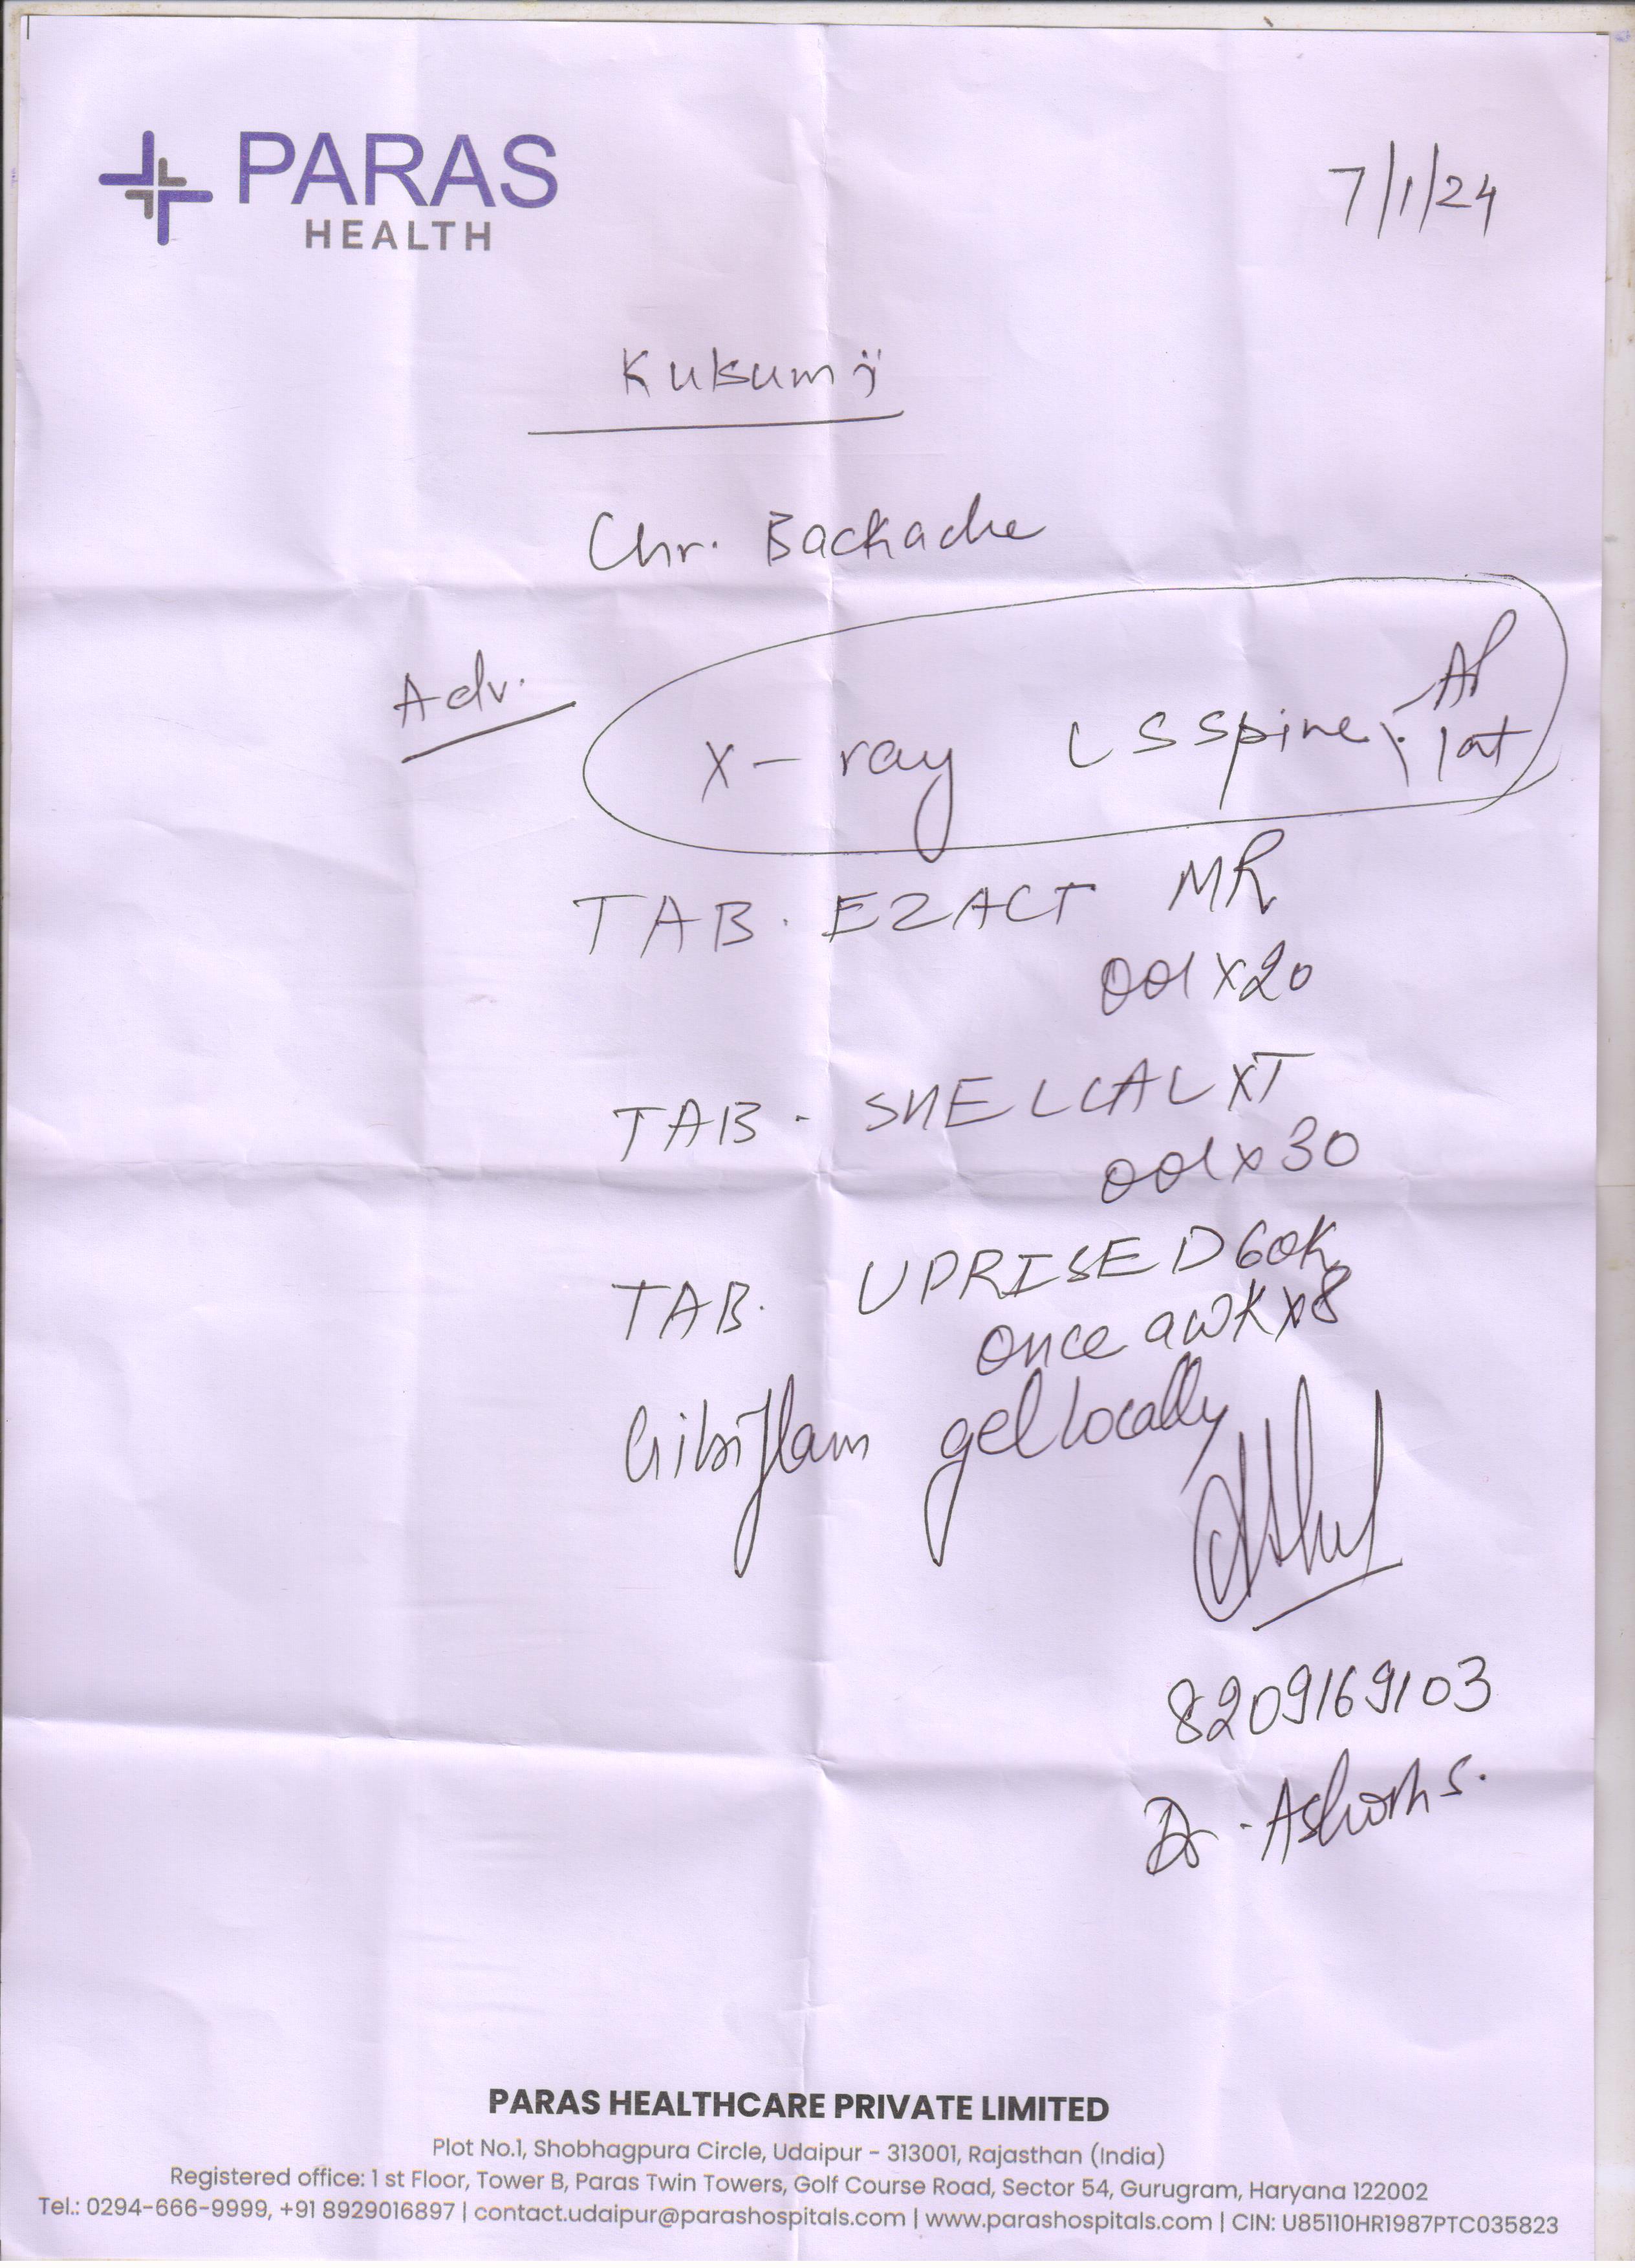 PARAS
HEALTH
7/1/24
Kuksum ji
Chr. Backache
Adv.
X-ray LS spine AP
lat
TAB. EZACT MR
001 x 20
TAB. SHELCAL XT
001 x 30
TAB. UPRISE D 60K
once a wk x 8
gel locally
8209169103
Dr. Ashwth S.
PARAS HEALTHCARE PRIVATE LIMITED
Plot No.1, Shobhagpura Circle, Udaipur - 313001, Rajasthan (India)
Registered office: 1 st Floor, Tower B, Paras Twin Towers, Golf Course Road, Sector 54, Gurugram, Haryana 122002
Tel.: 0294-666-9999, +91 8929016897 | contact.udaipur@parashospitals.com | www.parashospitals.com | CIN: U85110HR1987PTC035823